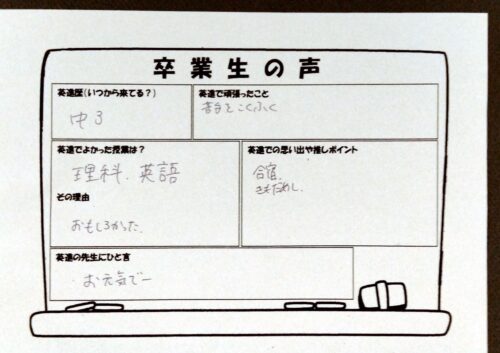 卒業生の声
英進歴(いつから来てる?)
中3
英進で頑張ったこと
苦手をこくふく
英進でよかった授業は?
理科、英語
その理由
おもしろかった。
英進での思い出や推しポイント
合宿、
きもだめし。
英進の先生にひと言
お元気でー